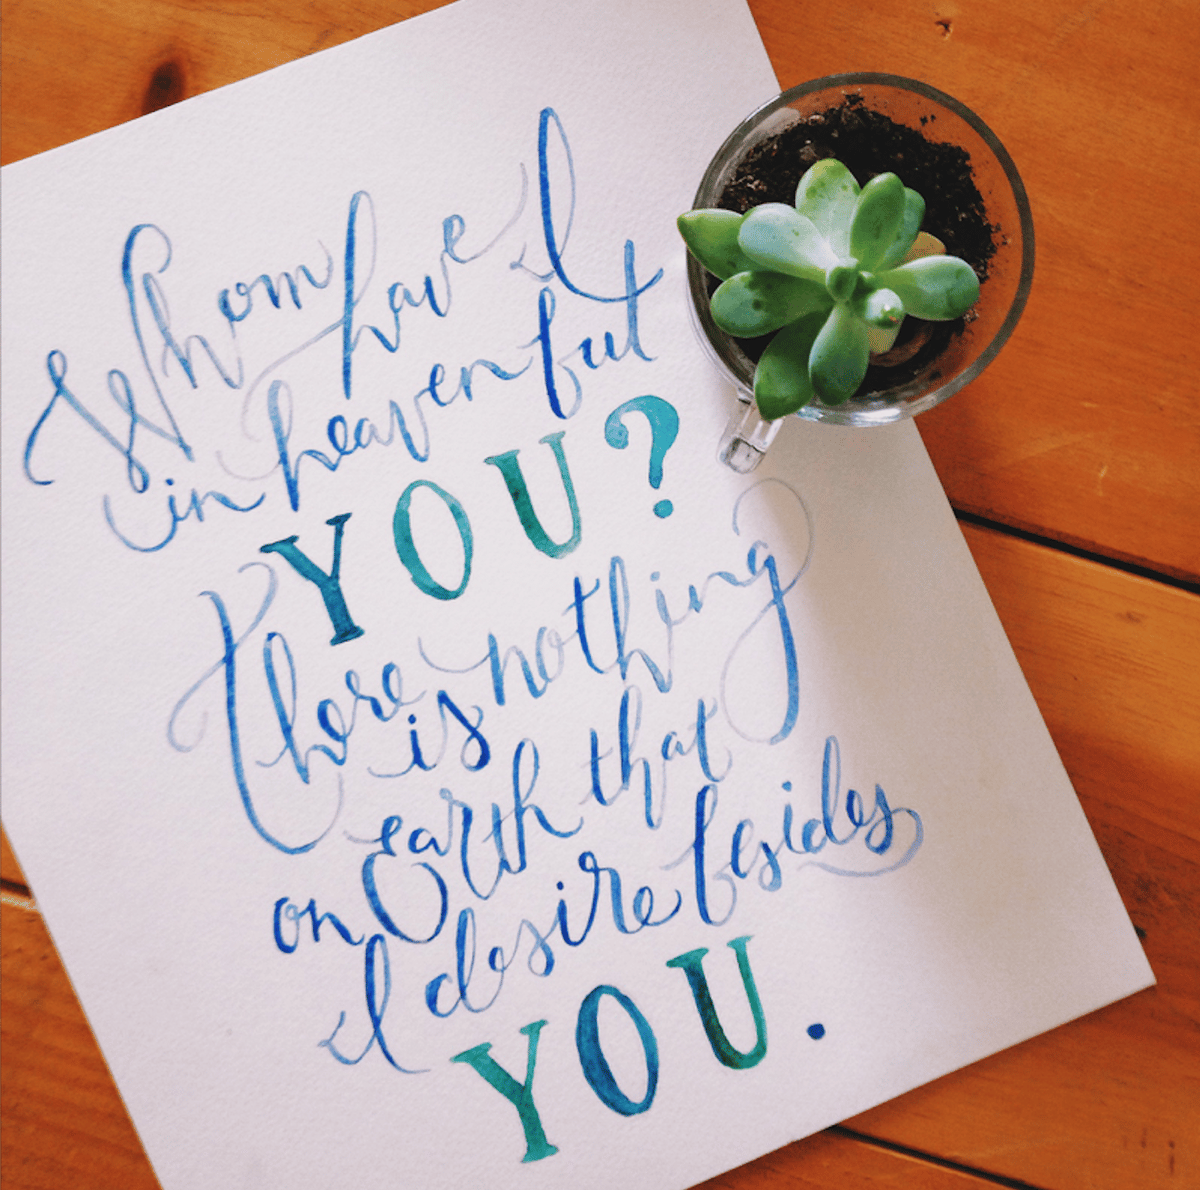 Whom have I
in heaven but
YOU?
There is nothing
on Earth that
I desire besides
YOU.